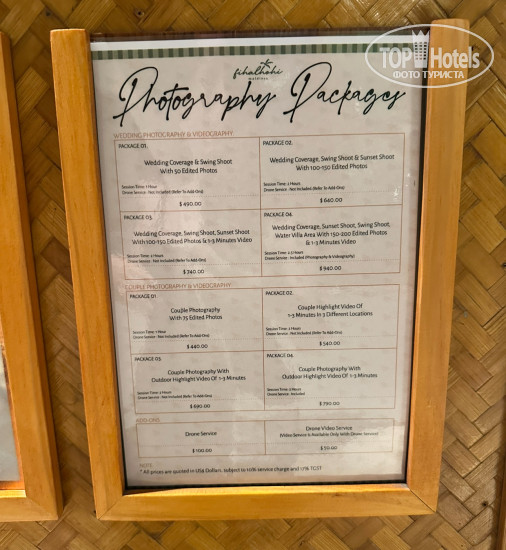 TOPHotels
ФОТО ТУРИСТА
fihalhohi
MALDIVES
Photography Packages
WEDDING PHOTOGRAPHY & VIDEOGRAPHY
PACKAGE 01.
Wedding Coverage & Swing Shoot
With 50 Edited Photos
Session Time: 1 Hour
Drone Service - Not Included (Refer To Add-Ons)
$ 490.00
PACKAGE 02.
Wedding Coverage, Swing Shoot & Sunset Shoot
With 100-150 Edited Photos
Session Time: 2 Hours
Drone Service - Not Included (Refer To Add-Ons)
$ 640.00
PACKAGE 03.
Wedding Coverage, Swing Shoot, Sunset Shoot
With 100-150 Edited Photos & 1-3 Minutes Video
Session Time: 2 Hours
Drone Service - Not Included (Refer To Add-Ons)
$ 740.00
PACKAGE 04.
Wedding Coverage, Sunset Shoot, Swing Shoot,
Water Villa Area With 150-200 Edited Photos
& 1-3 Minutes Video
Drone Service - Included (Photography & Videography)
$ 940.00
COUPLE PHOTOGRAPHY & VIDEOGRAPHY
PACKAGE 01.
Couple Photography
With 75 Edited Photos
Session Time: 1 Hour
Drone Service - Not Included (Refer To Add-Ons)
$ 440.00
PACKAGE 02.
Couple Highlight Video Of
1-3 Minuts In 3 Different Locations
Session Time: 2 Hours
Drone Service - Not Included (Refer To Add-Ons)
$ 540.00
PACKAGE 03.
Couple Photography With
Outdoor Highlight Video Of 1-3 Minutes
Drone Service - Not Included (Refer To Add-Ons)
$ 690.00
PACKAGE 04.
Couple Photography With
Outdoor Highlight Video Of 1-3 Minutes
Drone Service - Included
$ 790.00
ADD-ONS
Drone Service
$ 100.00
Drone Video Service
(Video Service Is Available Only With Drone Service)
$ 50.00
NOTE:
* All prices are quoted in US$ Dollars, subject to 10% service charge and 17% TGST